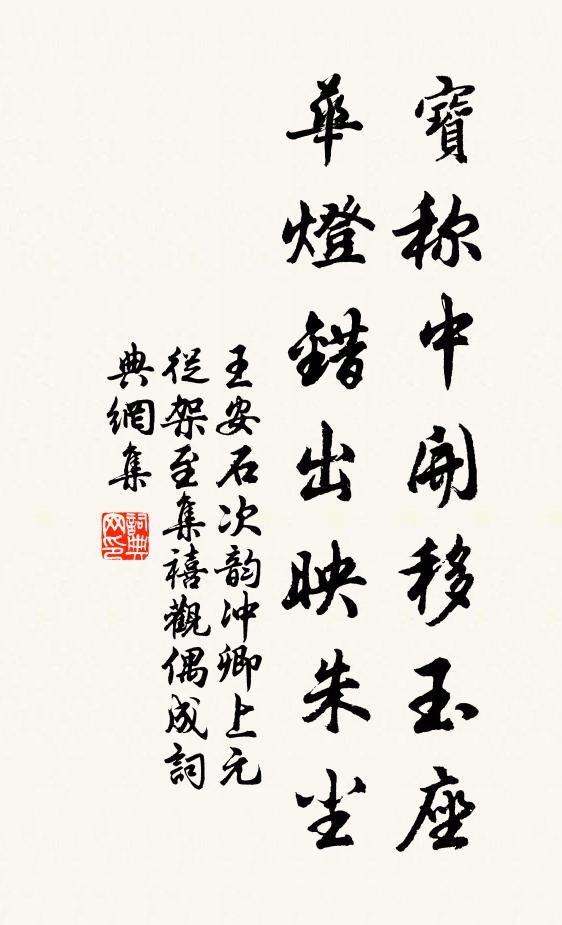 寶称中開移玉座
華燈錯出映朱尘
王安石次韵冲卿上元
從架至集禧觀偶成詞
典網集
詞典
网印